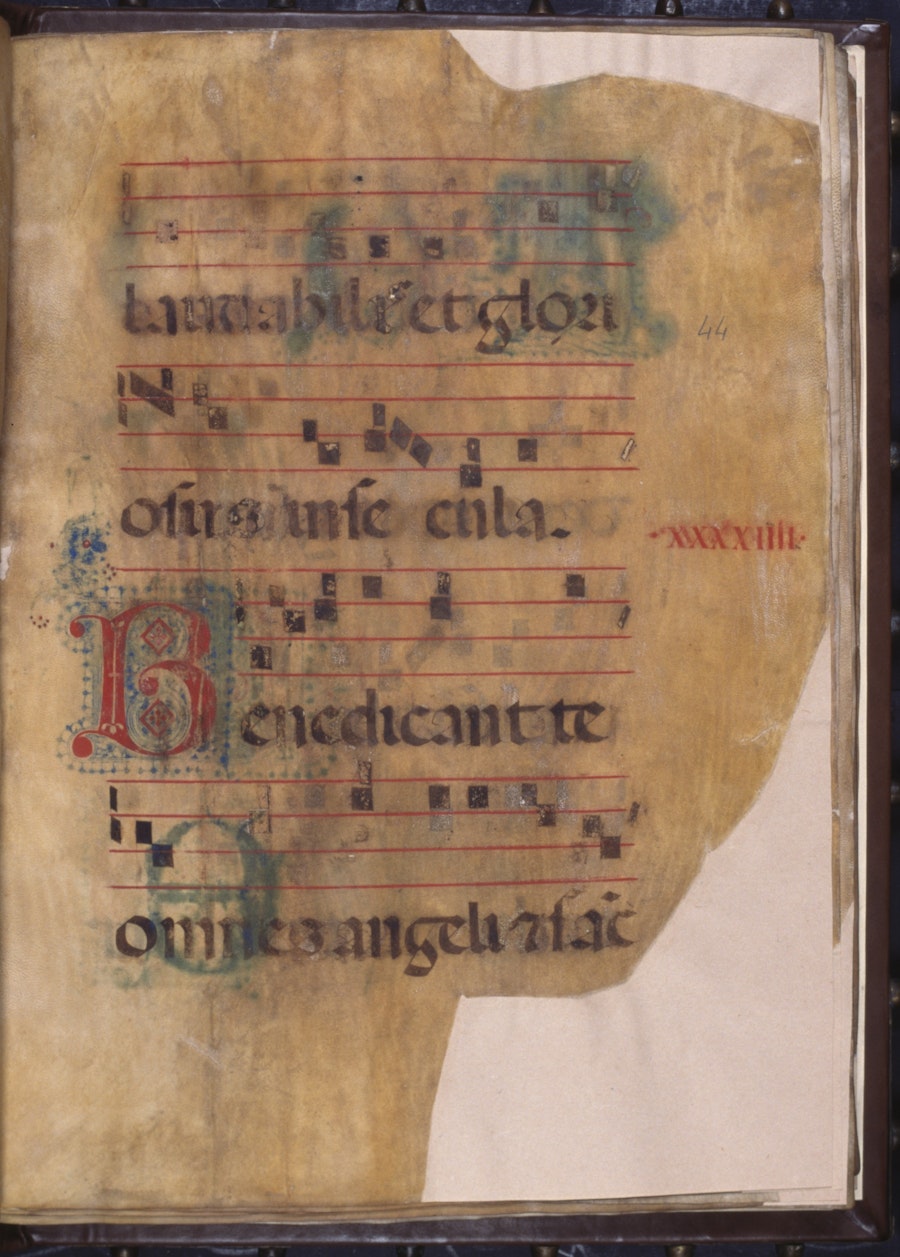 laudabilis et glori
44
osus in se cula.
·XXXXIIII·
Benedicant te
omnes angeli ⁊ sāc